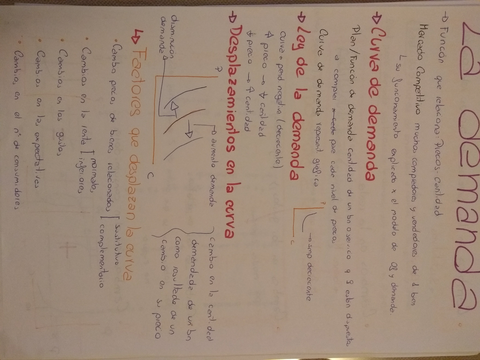 La demanda
→ Función que relaciona Precio-Cantidad
Mercado Competitivo muchos compradores y vendedores de 1 bien
↳ su funcionamiento explicado x el modelo de of y demanda
→ Curva de demanda
Plan/Función de demanda cantidad de un bien o servicio q
a comprar cada nivel de precio
Curva de demanda repres. gráfica
→ uno decreciente
→ Ley de la demanda
↑ precio → ↓ cantidad
↓ precio → ↑ cantidad
curva = pend negativa (decreciente)
→ Desplazamientos en la curva
P
disminución
demanda
→ aumento demanda
C
cambio en la cantidad
demandada de un bien
como resultado de un
cambio en su precio
↳ Factores que desplazan la curva
• Cambio precio de bienes relacionados [sustitutivos
complementarios
• Cambios en la renta [normales,
inferiores,
• Cambios en los gustos,
• Cambios en las expectativas
• Cambios en el nº de consumidores,